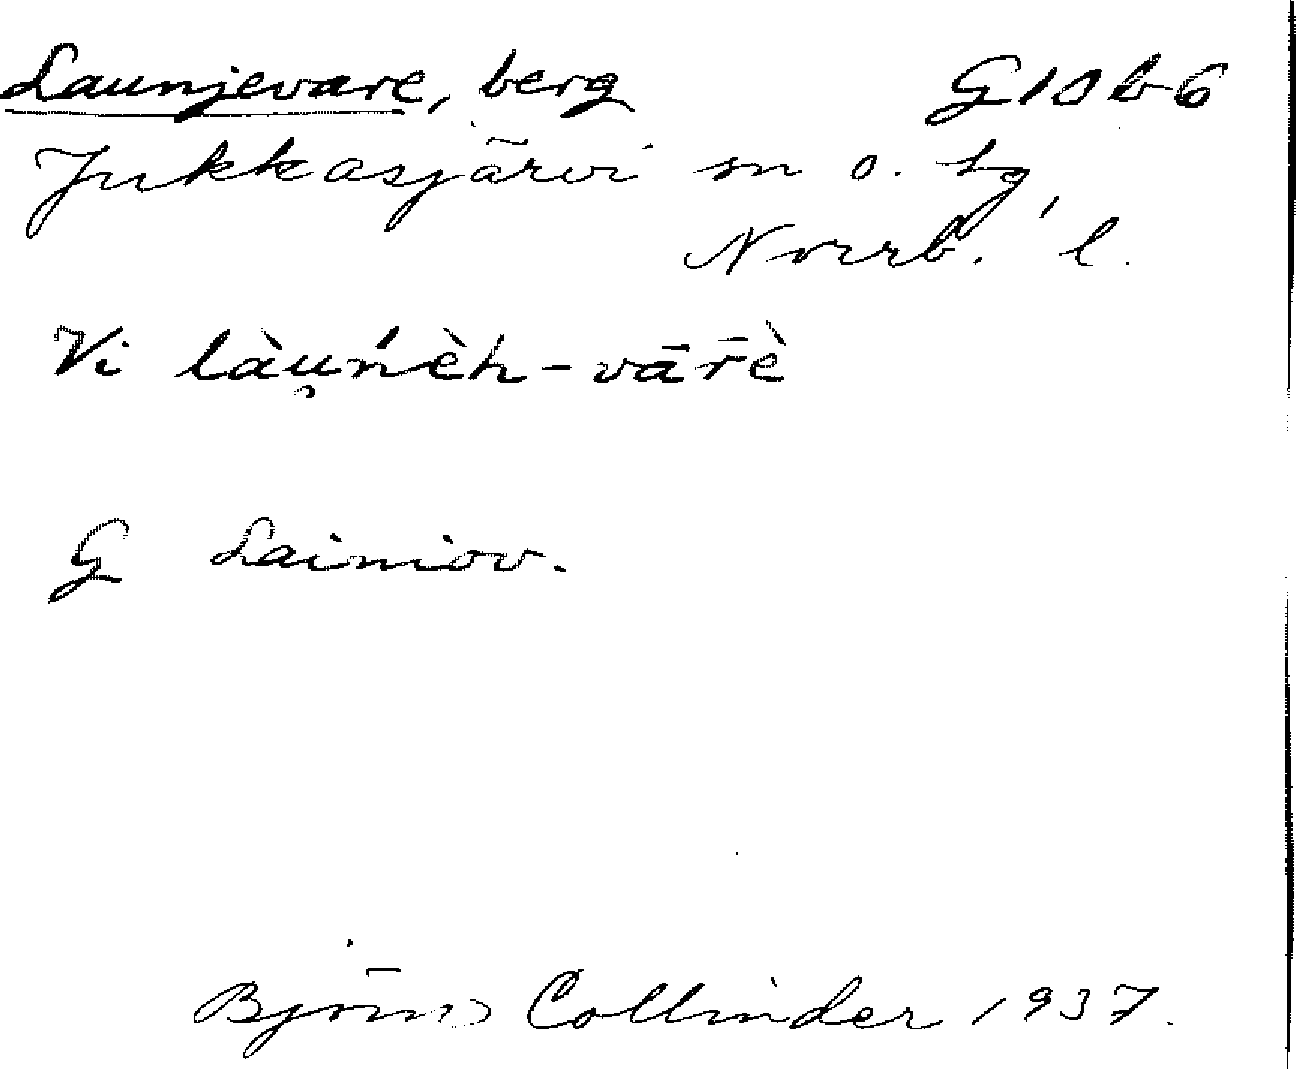 Launjevare, berg G10b6
Jukkasjärvi sn o. tg,
Norrb. l.
Vi làu̯ńèh-vār̄è
G Lainiov.
Björn Collinder 1937.